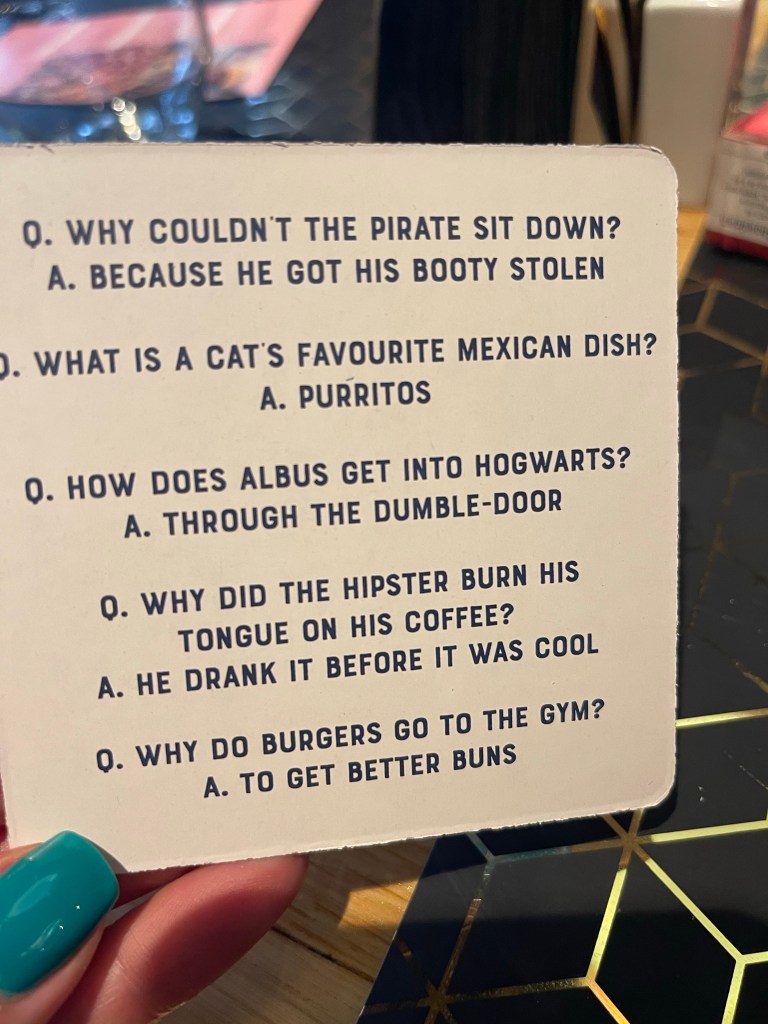 Q. WHY COULDN'T THE PIRATE SIT DOWN?
A. BECAUSE HE GOT HIS BOOTY STOLEN
Q. WHAT IS A CAT'S FAVOURITE MEXICAN DISH?
A. PURRITOS
Q. HOW DOES ALBUS GET INTO HOGWARTS?
A. THROUGH THE DUMBLE-DOOR
Q. WHY DID THE HIPSTER BURN HIS
TONGUE ON HIS COFFEE?
A. HE DRANK IT BEFORE IT WAS COOL
Q. WHY DO BURGERS GO TO THE GYM?
A. TO GET BETTER BUNS